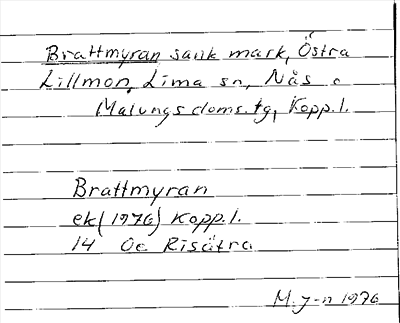 Brattmyran sank mark, Östra
Lillmon, Lima sn, Nås o
Malungs doms.tg, Kopp.l.
Brattmyran
ek (1976) Kopp.l.
14 Öe Risätra
M. J-n 1976